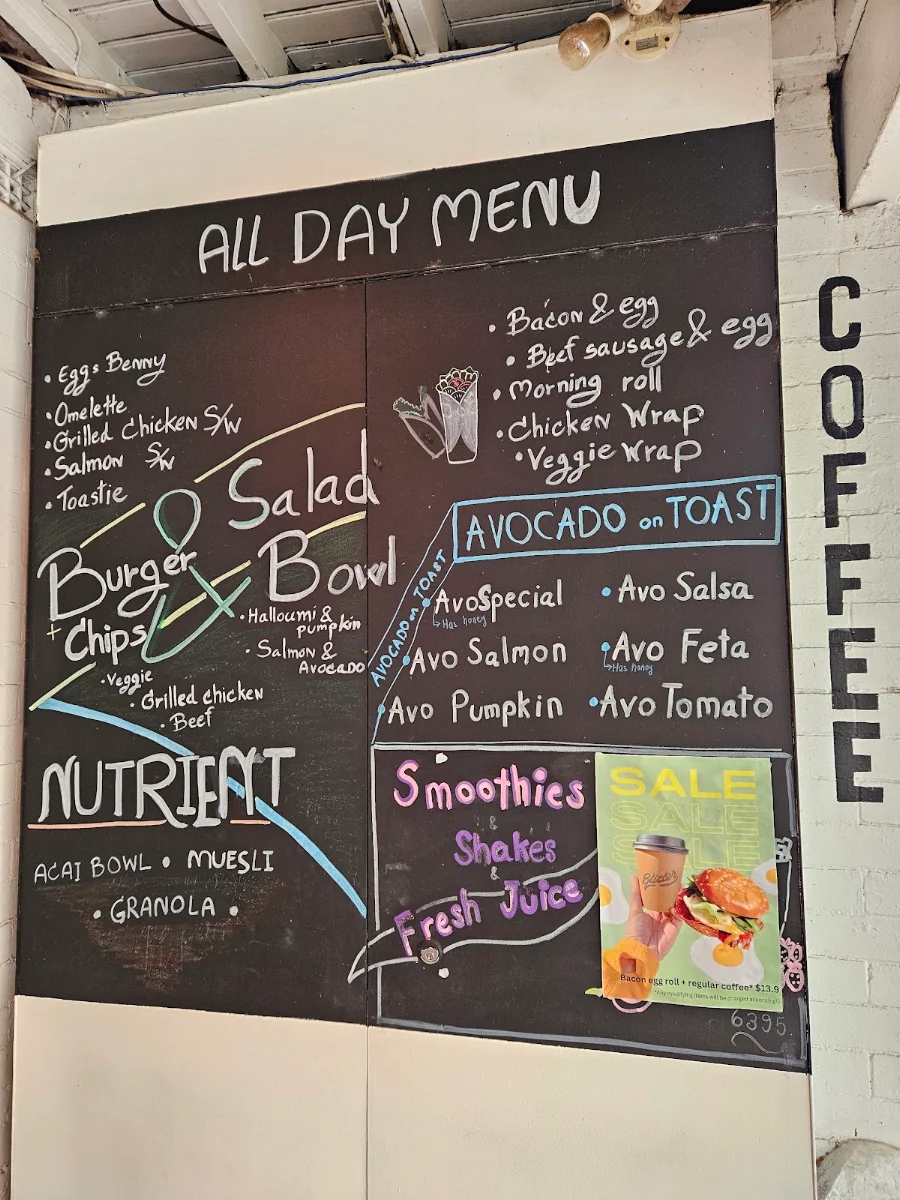 ALL DAY MENU
• Eggs Benny
• Omelette
• Grilled Chicken S/W
• Salmon S/W
• Toastie
Burger
+ Chips
• Veggie
• Grilled chicken
• Beef
Salad
Bowl
• Halloumi &
pumpkin
• Salmon &
Avocado
NUTRIENT
ACAI BOWL • MUESLI
• GRANOLA •
• Bacon & egg
• Beef sausage & egg
• Morning roll
• Chicken Wrap
• Veggie Wrap
AVOCADO on TOAST
AVOCADO on TOAST
• Avo Special
Has honey
• Avo Salsa
• Avo Salmon
• Avo Feta
Has honey
• Avo Pumpkin
• Avo Tomato
Smoothies
&
Shakes
&
Fresh Juice
SALE
SALE
SALE
Bacon egg roll + regular coffee* $13.9
6395
COFFEE